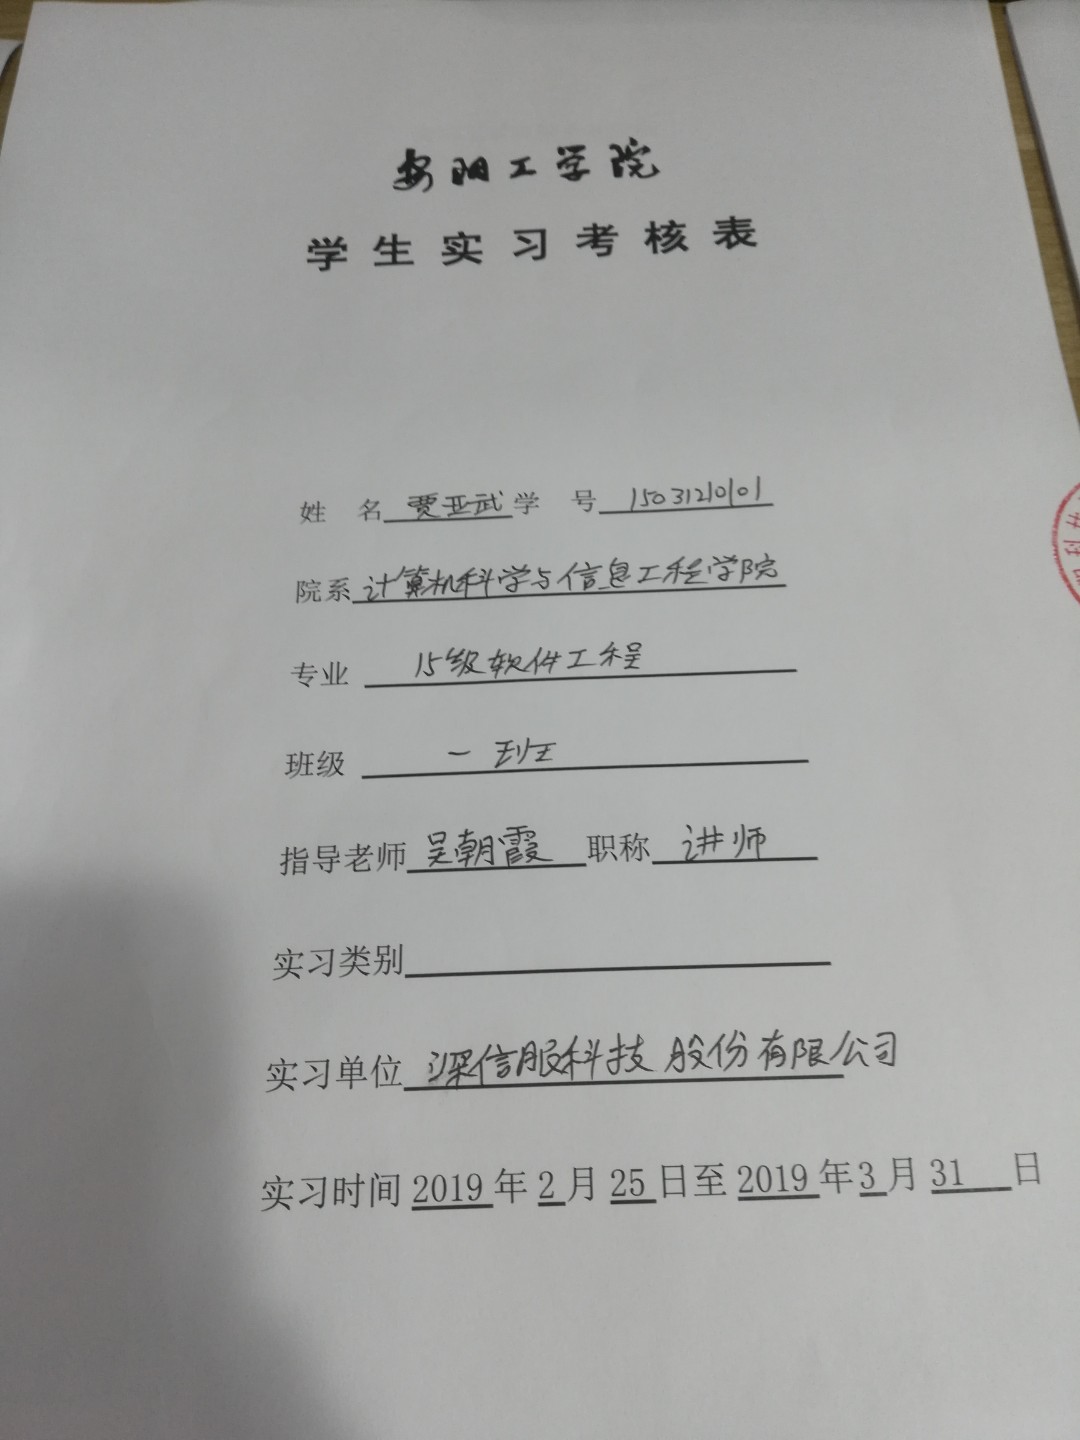 安阳工学院
学生实习考核表
姓 名 贾亚武 学 号 150312010
院系 计算机科学与信息工程学院
专业 15级软件工程
班级 一班
指导老师 吴朝霞 职称 讲师
实习类别
实习单位 深信服科技股份有限公司
实习时间 2019 年 2 月 25 日至 2019 年 3 月 31 日